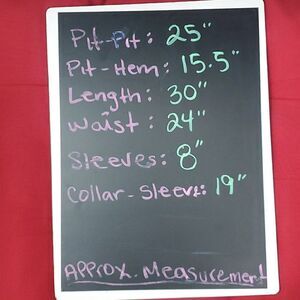 Pit-Pit: 25"
Pit-Hem: 15.5"
Length: 30"
Waist: 24"
Sleeves: 8"
Collar-Sleeve: 19"
Approx. Measurement